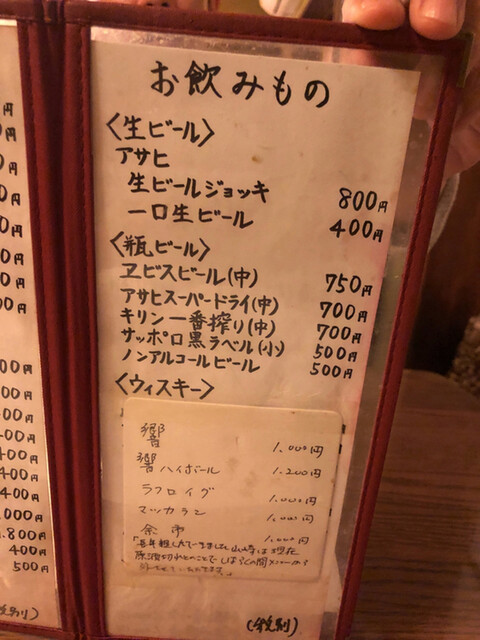 お飲みもの
〈生ビール〉
アサヒ
生ビールジョッキ 800円
一口生ビール 400円
〈瓶ビール〉
ヱビスビール(中) 750円
アサヒスーパードライ(中) 700円
キリン一番搾り(中) 700円
サッポロ黒ラベル(小) 500円
ノンアルコールビール 500円
〈ウィスキー〉
響 1.000円
響ハイボール 1.200円
ラフロイグ 1.000円
マッカラン 1.000円
余市 1.000円
原酒切れとのことで しばらくの間
(税別)
円
0円
0円
0円
0円
0円
0円
00円
00円
400円
400円
400円
400円
,000円
.800円
400円
500円
税別)